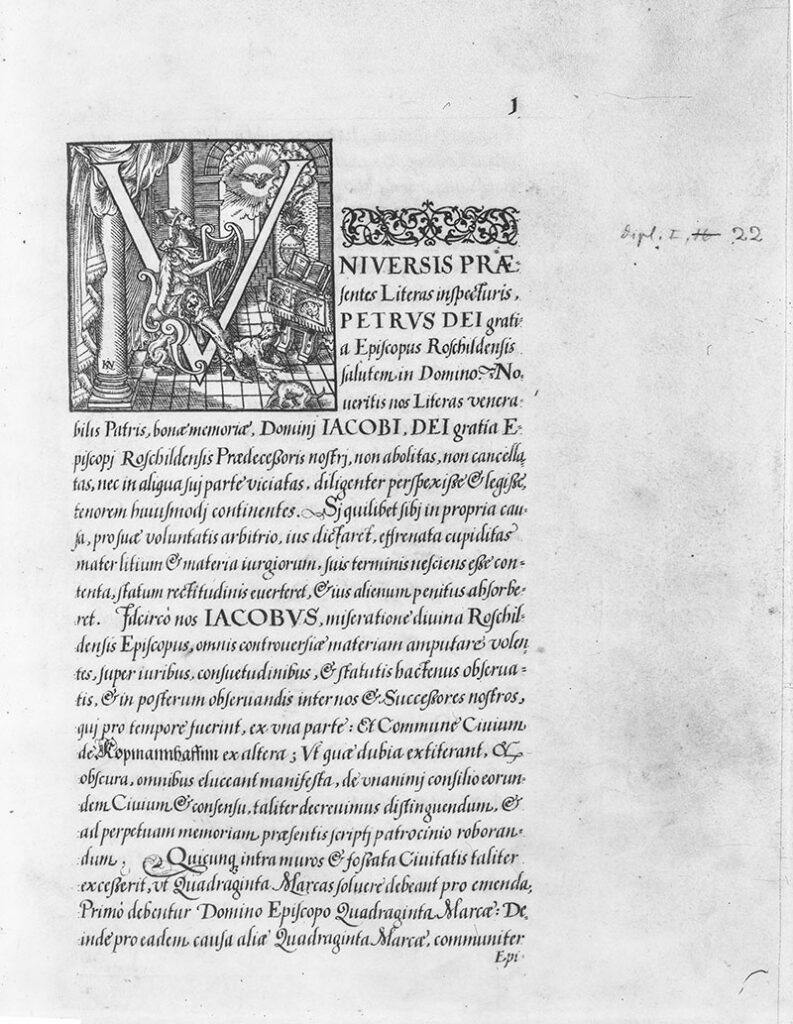 1
V
NIVERSIS PRÆ-
sentes Literas inspecturis,
PETRVS DEI grati-
a Episcopus Roschildensis
salutem in Domino. No-
ueritis nos Literas venera-
bilis Patris, bonæ memoriæ, Dominj IACOBI, DEI gratia E-
piscopj Roschildensis Prædeceßoris nostrj, non abolitas, non cancella-
tas, nec in aliqua suj parte viciatas, diligenter perspexiße & legiße,
tenorem huiusmodj continentes. Sj quilibet sibj in propria cau-
sa, pro suæ voluntatis arbitrio, ius dictaret, effrenata cupiditas
mater litium & materia iurgiorum, suis terminis nesciens eße con-
tenta, statum rectitudinis euerteret, & ius alienum penitus absorbe-
ret. Idcircò nos IACOBVS, miseratione diuina Roschil-
densis Episcopus, omnis controuersiæ materiam amputare volen-
tes, super iuribus, consuetudinibus, & statutis hactenus obserua-
tis, & in posterum obseruandis inter nos & Succeßores nostros,
quj pro tempore fuerint, ex vna parte: Et Commune Ciuium
de Kopmannhaffnn ex altera; Vt quæ dubia extiterant, &
obscura, omnibus eluceant manifesta, de vnanimj consilio eorun-
dem Ciuium & consensu, taliter decreuimus distinguendum, &
ad perpetuam memoriam præsentis scriptj patrocinio roboran-
dum. Quicunq intra muros & foßata Ciuitatis taliter
exceßerit, vt Quadraginta Marcas soluere debeant pro emenda,
Primò debentur Domino Episcopo Quadraginta Marcæ: De-
inde pro eadem causa aliæ Quadraginta Marcæ, communiter
Epi-
Dipl. I, 22
HV